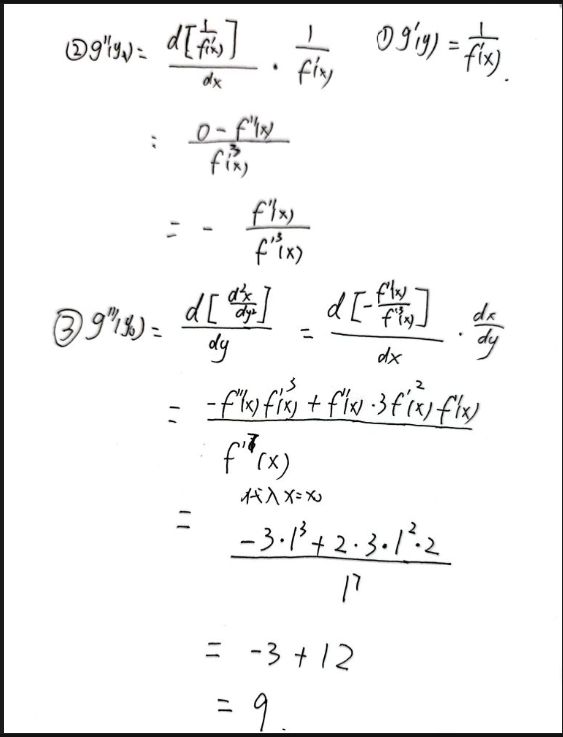 ② g''(y₀) = d[1/f'(x)]/dx · 1/f'(x) ① g'(y) = 1/f'(x).
: (0 - f''(x))/f'³(x)
= - f''(x)/f'³(x)
③ g'''(y₀) = d[d²x/dy²]/dy = d[-f''(x)/f'³(x)]/dx · dx/dy
= (-f'''(x) f'(x)³ + f''(x) · 3f'(x)² f''(x))/f'⁷(x)
代入 x=x₀
= (-3·1³ + 2·3·1²·2)/1⁷
= -3 + 12
= 9.